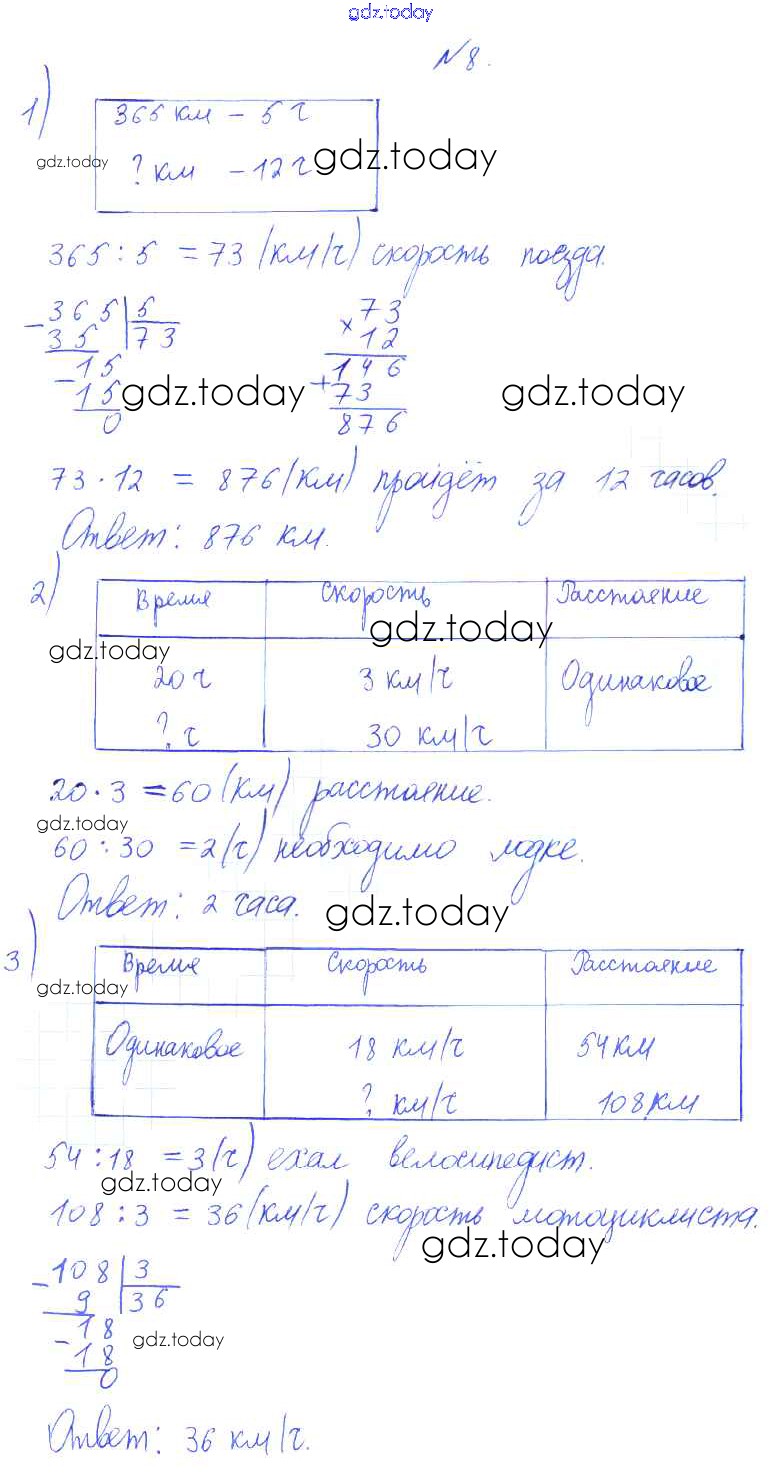 gdz.today
№8.
1)
365 км – 5 ч
gdz.today
? км – 12 ч gdz.today
365 : 5 = 73 (км/ч) скорость поезда.
365 | 5
35 | 73
15
15
0
× 73
12
146
+ 73
876
gdz.today
gdz.today
73 · 12 = 876 (км) пройдёт за 12 часов.
Ответ: 876 км.
2)
Время Скорость Расстояние
gdz.today gdz.today
20 ч 3 км/ч Одинаковое
? ч 30 км/ч
20 · 3 = 60 (км) расстояние.
gdz.today
60 : 30 = 2 (ч) необходимо лодке.
Ответ: 2 часа. gdz.today
3)
Время Скорость Расстояние
gdz.today
Одинаковое 18 км/ч 54 км
? км/ч 108 км
54 : 18 = 3 (ч) ехал велосипедист.
gdz.today
108 : 3 = 36 (км/ч) скорость мотоциклиста.
gdz.today
– 108 | 3
9 | 36
– 18
18
0
gdz.today
Ответ: 36 км/ч.